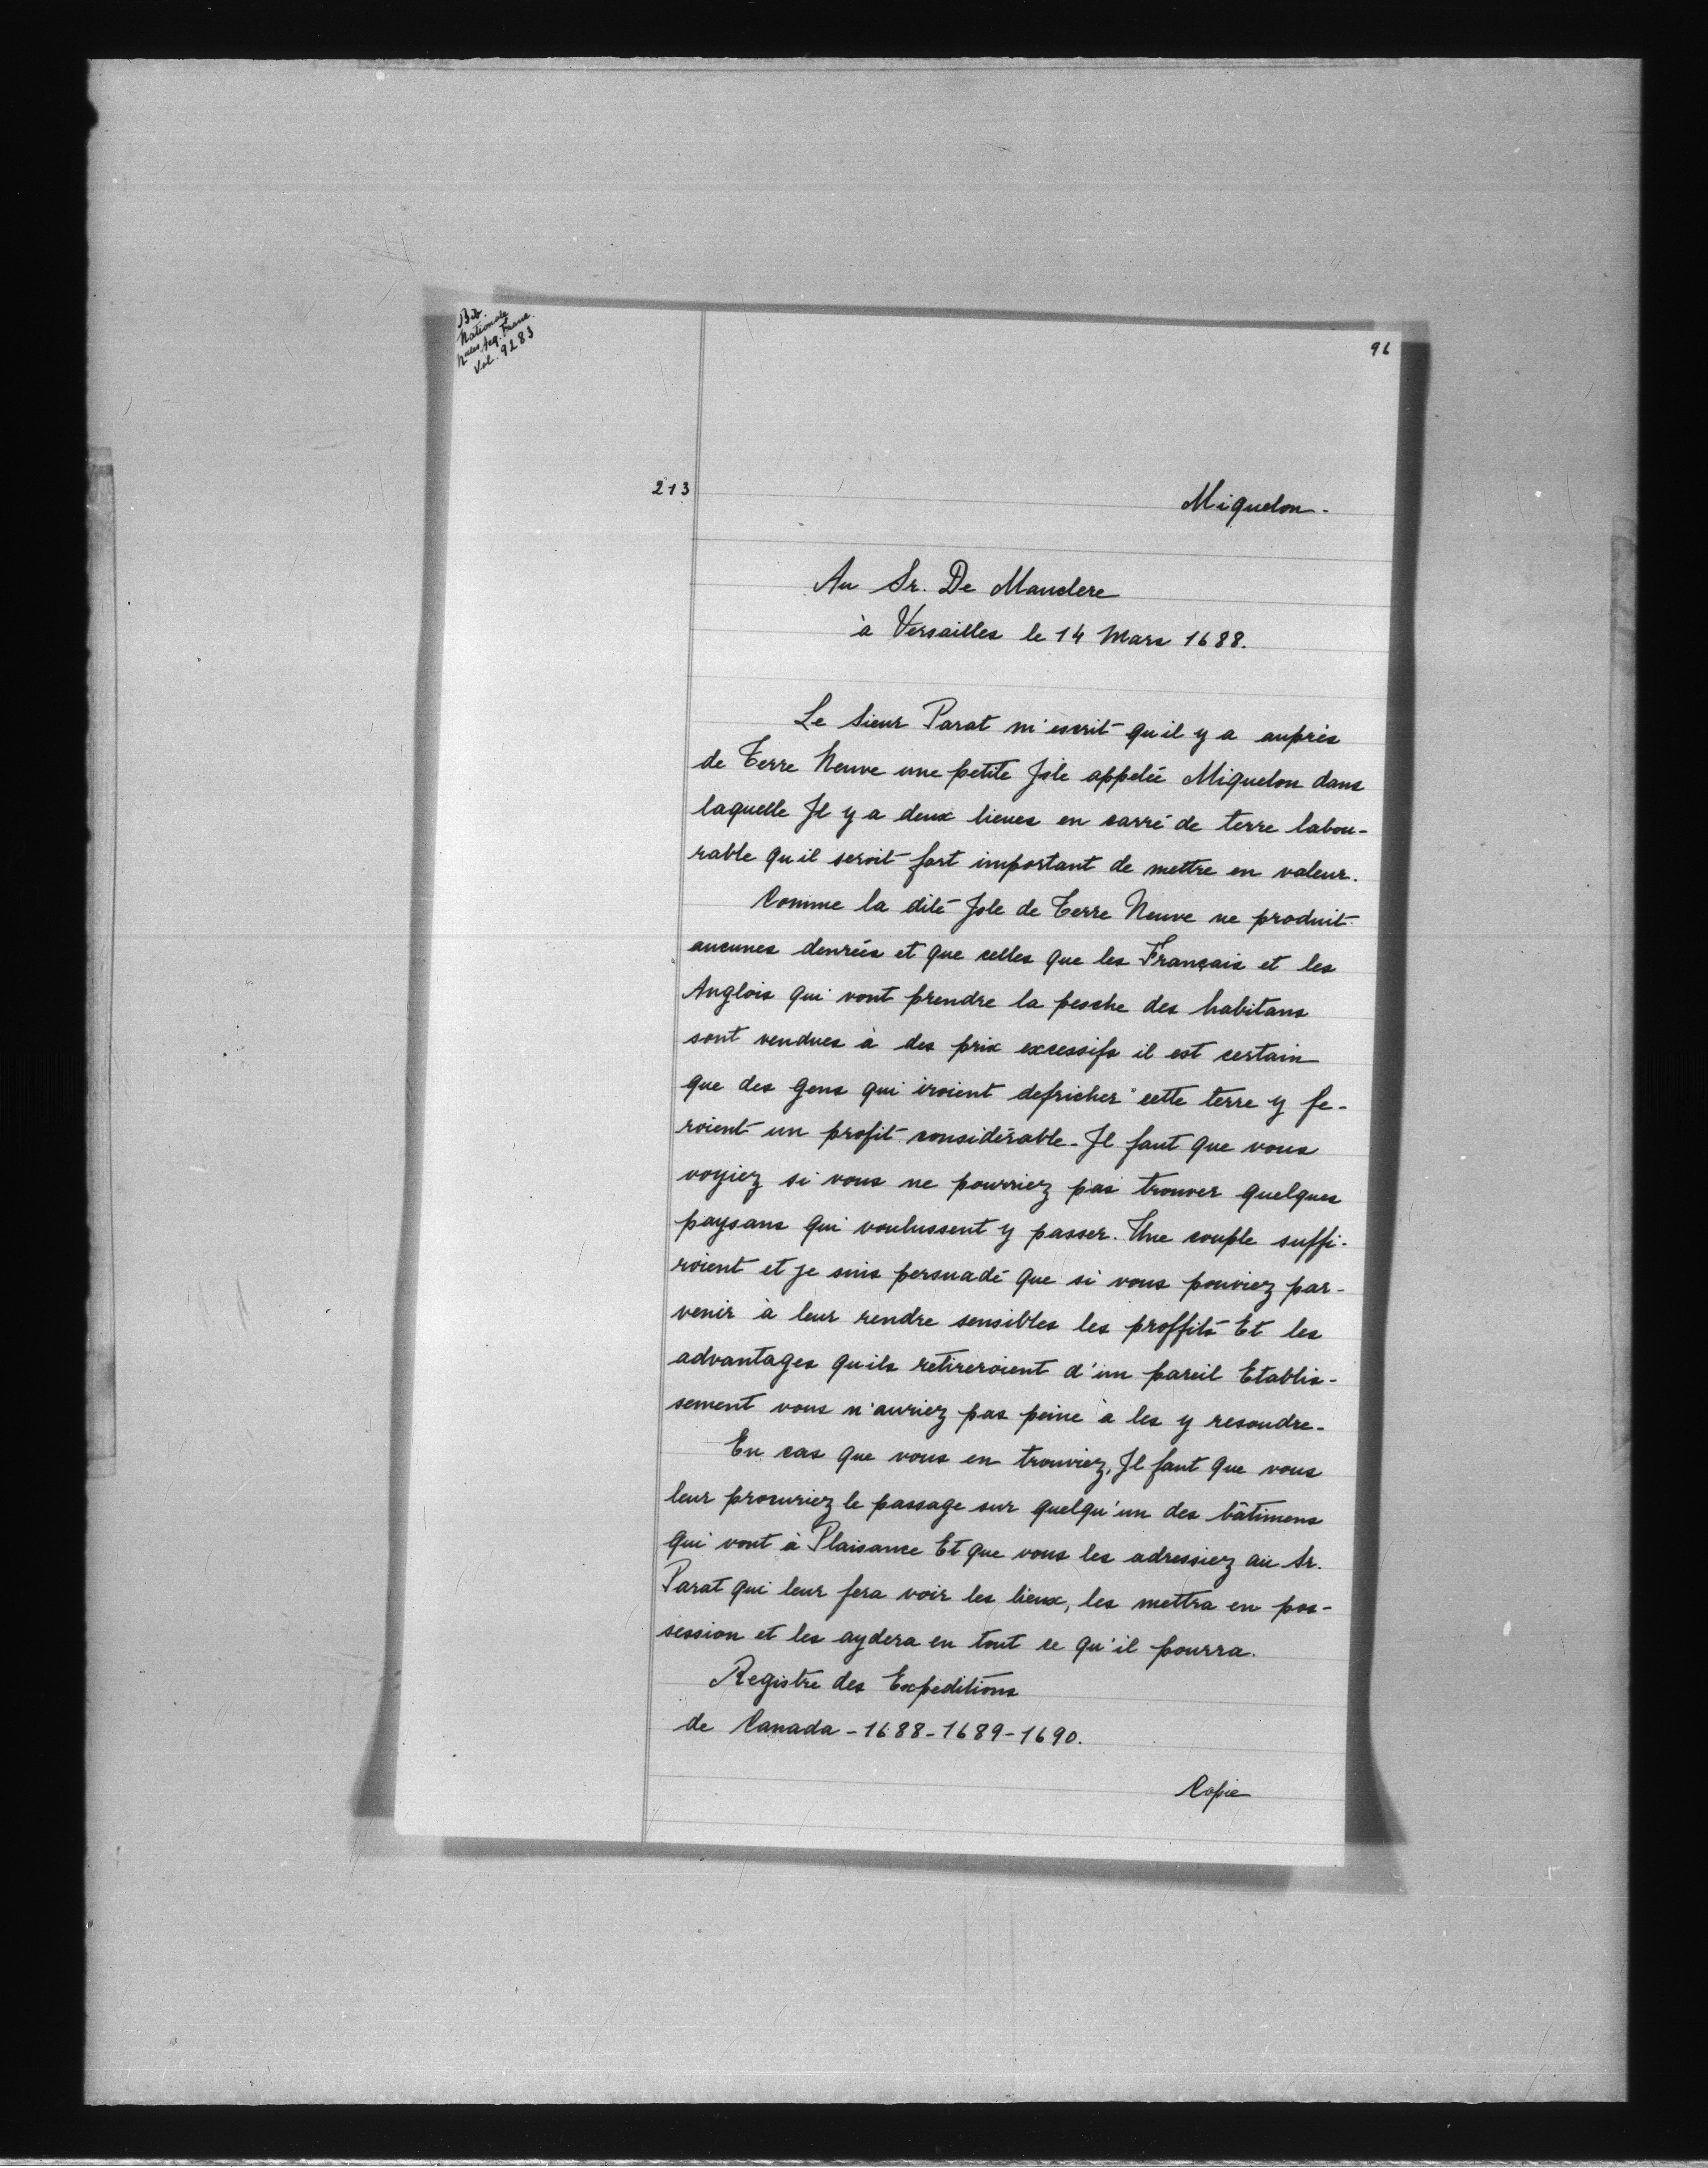 Bib.
Nationale
Nelles Acq. Franc.
Vol. 9283
96
213
Miquelon.
Au Sr. De Mauclere
à Versailles le 14 Mars 1688.
Le Sieur Parat m'escrit qu'il y a auprès
de Terre Neuve une petite Isle appelée Miquelon dans
laquelle Il y a deux lieues en carré de terre labou-
rable qu'il seroit fort important de mettre en valeur.
Comme la dite Isle de Terre Neuve ne produit
aucunes denrées et que celles que les Français et les
Anglois qui vont prendre la pesche des habitans
sont vendues à des prix excessifs il est certain
que des gens qui iroient defricher cette terre y fe-
roient un profit considérable. Il faut que vous
voyiez si vous ne pourriez pas trouver quelques
paysans qui voulussent y passer. Une couple suffi-
roient et je suis persuadé que si vous pouviez par-
venir à leur rendre sensibles les proffits Et les
advantages qu'ils retireroient d'un pareil Etablis-
sement vous n'auriez pas peine à les y resoudre.
En cas que vous en trouviez, Il faut que vous
leur procuriez le passage sur quelqu'un des bâtimens
qui vont à Plaisance Et que vous les adressiez au Sr.
Parat qui leur fera voir les lieux, les mettra en pos-
session et les aydera en tout ce qu'il pourra.
Registre des Expeditions
de Canada - 1688 - 1689 - 1690.
Copie